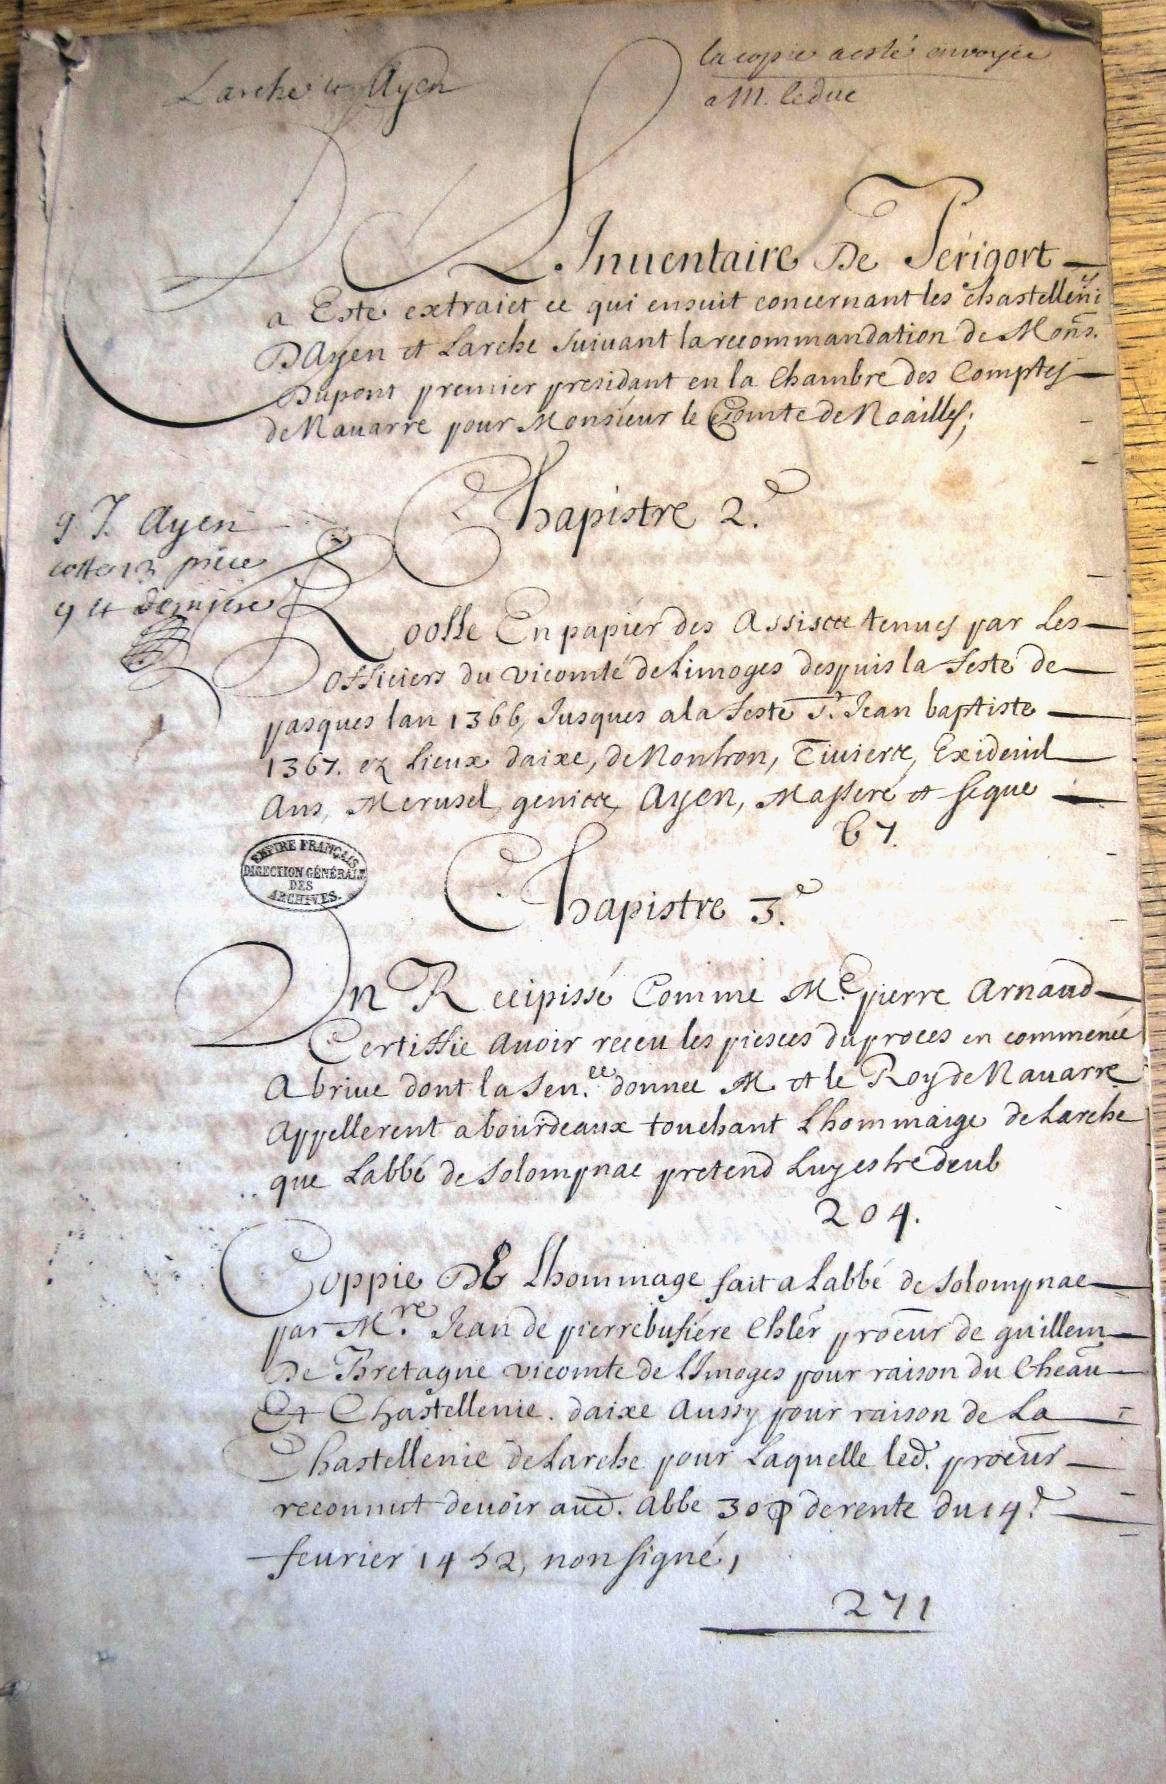 Larche et Ayen
la copie a esté envoyée
a M. le duc
De LInuentaire De Périgort
a Este extraict ce qui ensuit concernant les chastelleniēs
DAyen et Larche suiuant la recommandation de Mons.
Dupont premier presidant en la Chambre des Comptes
de Nauarre pour Monsieur le Comte de Noailles;
Chapistre 2.e
Ayen
cotte 12 piece
9 et derniere
Roolle En papier des Assiscte tenues par Les
officiers du vicomté de Limoges despuis la feste de
pasques lan 1366, Jusques a la feste St. Jean baptiste
1367. ez Lieux daixe, de Nontron, Tiuierre, Exideuil
Ans, Merusel, genicte, Ayen, Massere et segue
67.
EMPIRE FRANÇAIS
DIRECTION GÉNÉRALE
DES
ARCHIVES.
Chapistre 3.e
Un Recipissé Comme Me. pierre Arnaud
Certiffie auoir receu les piesces du proces en commencé
A briue dont la Sen.ce donnee M et le Roy de Nauarre
appellerent a bourdeaux touchant Lhommaige de Larche
que Labbé de Solompnac pretend Luy estre deub
204.
Coppie DE Lhommage fait a Labbé de Solompnac
par M.re Jean de pierrebufiere Chlēr proēur de guillem
De Bretagne vicomte de Limoges pour raison du Cheāu
Et Chastellenie. daixe aussy pour raison de La
Chastellenie de Larche pour Laquelle led. proēur
reconnut deuoir aud. Abbe 30 de rente du 14.e
feurier 1452, non signé,
271